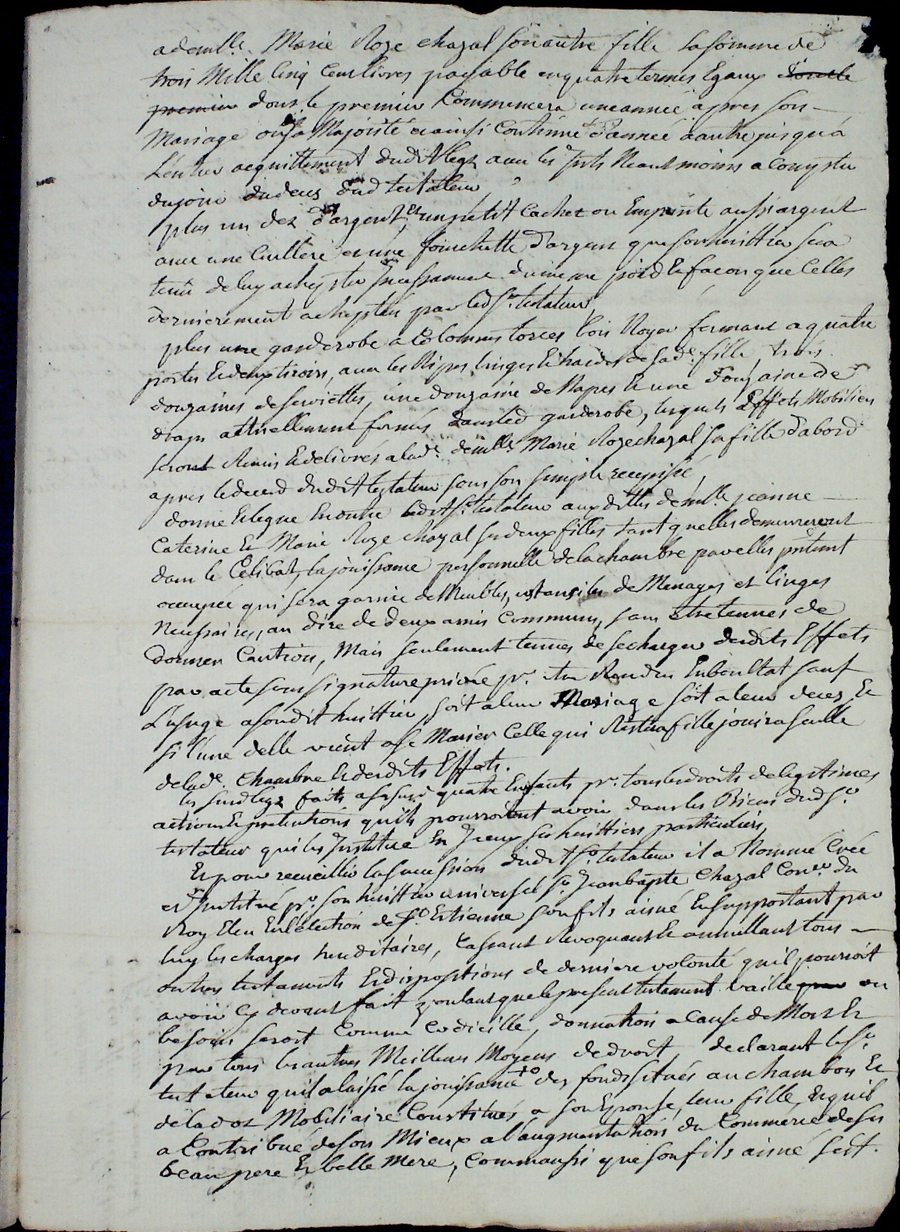 a demlle. Marie Roze chazal son autre fille la somme de
trois Mille Cinq Cent livres payable en quatre termes Egaux
premier dont le premier Commencera une année apres son
Mariage ou sa Majorité et ainsi Continué d'année a autre jusqu'a
L'entier acquittement dudit legz avec les Jnts Neantmoins a Compter
du jour du decez dud testateur
plus un dez d'argent, et un petit Cachet ou Empreinte aussi argent
avec une Cuillere et une fourchette d'argent que son herittier sera
tenu de luy achepter Jncessamment du meme poid et façon que Celles
dernierement acheptées par led sr. testateur
plus une garderobe a Colomnes torces bois Noyer fermant a quatre
portes et deux tiroirs, avec les Nipes, linges et hardes de sa de. fille, trois
douzaines de serviettes, une douzaine de Napes et une Douzaine de
draps actuellement fermés dans led garderobe, lesquels Effets Mobiliers
seront Remis et delivrés a lade. demlle. Marie Roze chazal sa fille d'abord
apres le deced dudit testateur sous son simple recepissé,
donne et legue En outre ledit sr. testateur aux dittes demlle jeanne
Caterine et Marie Roze chazal ses deux filles tant quelles demeureront
dans le Celibat, la jouissance personnelle de la chambre par elles
occupée qui sera garnie de Meubles, ustansiles de Menages et linges
Necessaires, au dire de deux amis Communs, sans etre tenues de
donner Caution, Mais seulement tenues de se charger desdits Effets
par acte sous signature privée pr. les Rendre En l'etat sauf
L'usage a sondit herittier, soit a leur Mariage soit a leur decez, Et
si l'une delle vient a se Marier Celle qui Restera fille jouira seulle
de lade. Chambre et desdits Effets.
les susd legz faits a sesd. quatre Enfants pr. tous les droits de legitimes
actions et pretentions qu'ils pourroient avoir dans les Biens dud sr.
testateur qui les Jnstitue En Jceux ses herittiers particuliers,
Et pour recueillir la succession dudit sr. testateur il a Nommé Créé
et Jnstitué pr. son herittier universel sr. Jean bapte. Chazal Coner. du
Roy Elu En l'élection de St. Etienne son fils aisné En supportant par
luy les charges hereditaires, Cassant Revoquant et annullant tous
autres testaments et dispositions de derniere volonté qu'il pourroit
avoir Cy devant fait voulant que le present testament vaille ou
besoin seroit Comme Codicille, donnation a Cause de Mort et
par tous les autres Meilleurs Moyens de droit declarant led sr.
testateur qu'il a laissé la jouissance des fonds situés au chambon et
de la dot Mobiliaire Constitués a son Epouse, leur fille, et qu'il
a Contribué de son Mieux a l'augmentation du Commerce de ses
beau pere et belle Mere, Comme aussi que son fils aisné s'est.